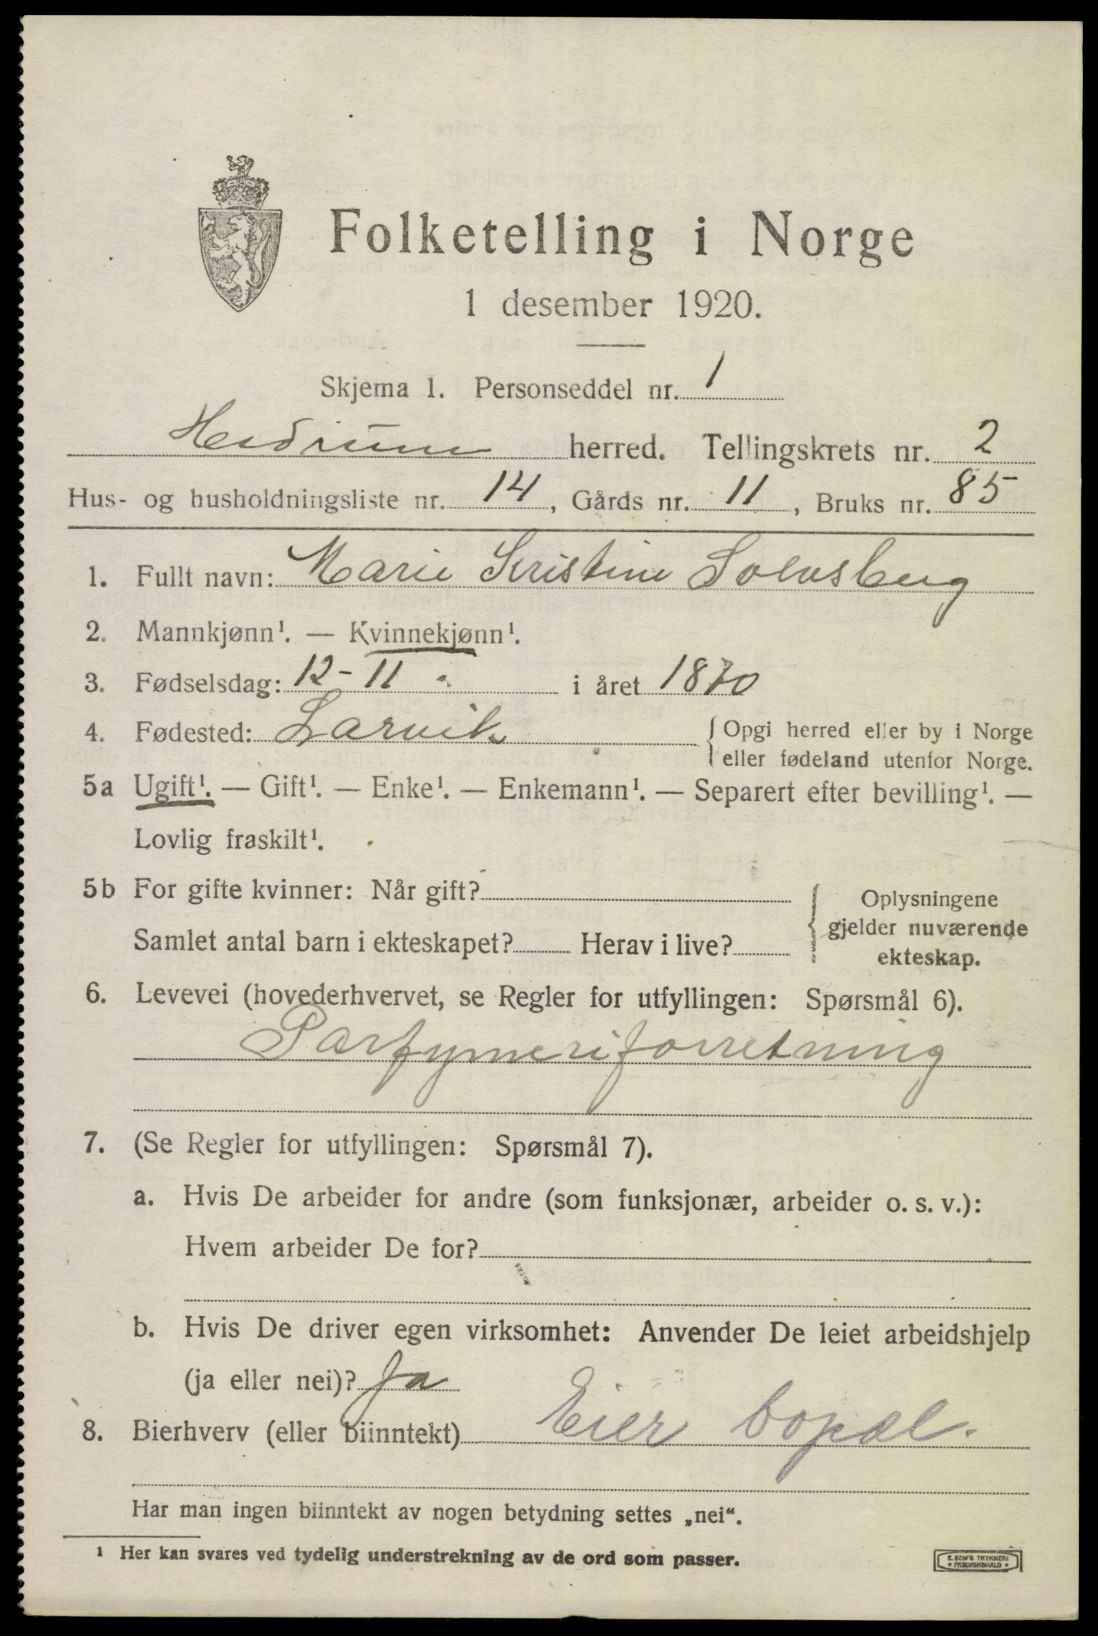 Folketelling i Norge
1 desember 1920.
Skjema 1. Personseddel nr. 1
Hedrum herred. Tellingskrets nr. 2
Hus- og husholdningsliste nr. 14, Gårds nr. 11, Bruks nr. 85
1. Fullt navn: Marie Kristine
2. Mannkjønn¹. — Kvinnekjønn¹.
3. Fødselsdag: 12-11 i året 1870
4. Fødested: Larvik {Opgi herred eller by i Norge
eller fødeland utenfor Norge.
5a Ugift¹. — Gift¹. — Enke¹. — Enkemann¹. — Separert efter bevilling¹. —
Lovlig fraskilt¹.
5b For gifte kvinner: Når gift?
Samlet antal barn i ekteskapet? Herav i live?
{Oplysningene
gjelder nuværende
ekteskap.
6. Levevei (hovederhvervet, se Regler for utfyllingen: Spørsmål 6).
Parfymeriforretning
7. (Se Regler for utfyllingen: Spørsmål 7).
a. Hvis De arbeider for andre (som funksjonær, arbeider o. s. v.):
Hvem arbeider De for?
b. Hvis De driver egen virksomhet: Anvender De leiet arbeidshjelp
(ja eller nei)? Ja
8. Bierhverv (eller biinntekt) Eier bopæl.
Har man ingen biinntekt av nogen betydning settes „nei“.
¹ Her kan svares ved tydelig understrekning av de ord som passer.
E. SEM'S TRYKKERI
FREDRIKSHALD